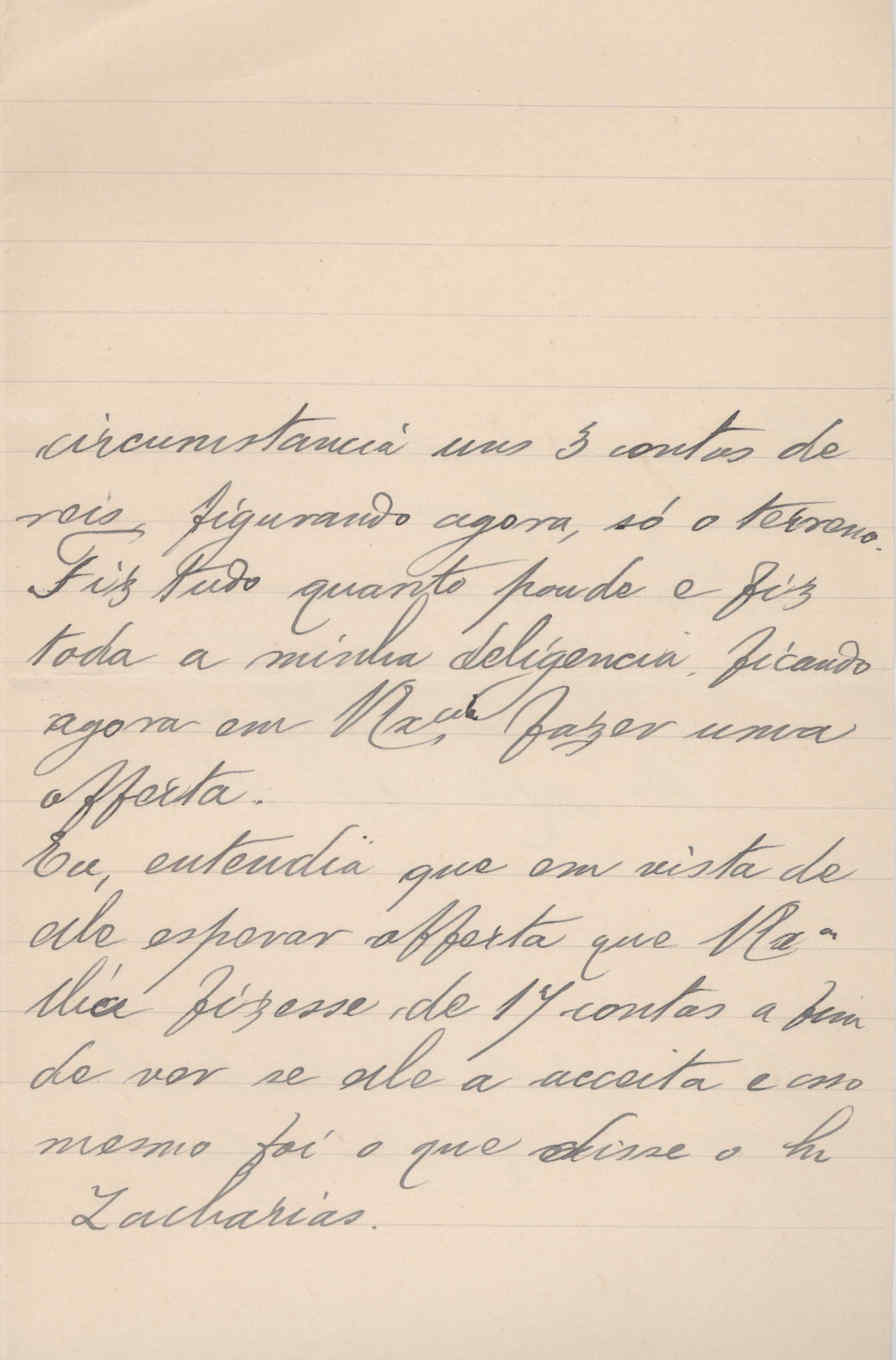 circumstancia uns 3 contos de
reis, figurando agora, só o terreno.
Fiz tudo quanto poude e fiz
toda a minha deligencia, ficando
agora em fazer uma
offerta.
Eu, entendia que em vista de
elle esperar offerta que
fizesse de 17 contos a fim
de ver se elle a acceita e isso
mesmo foi o que disse o
Zacharias.